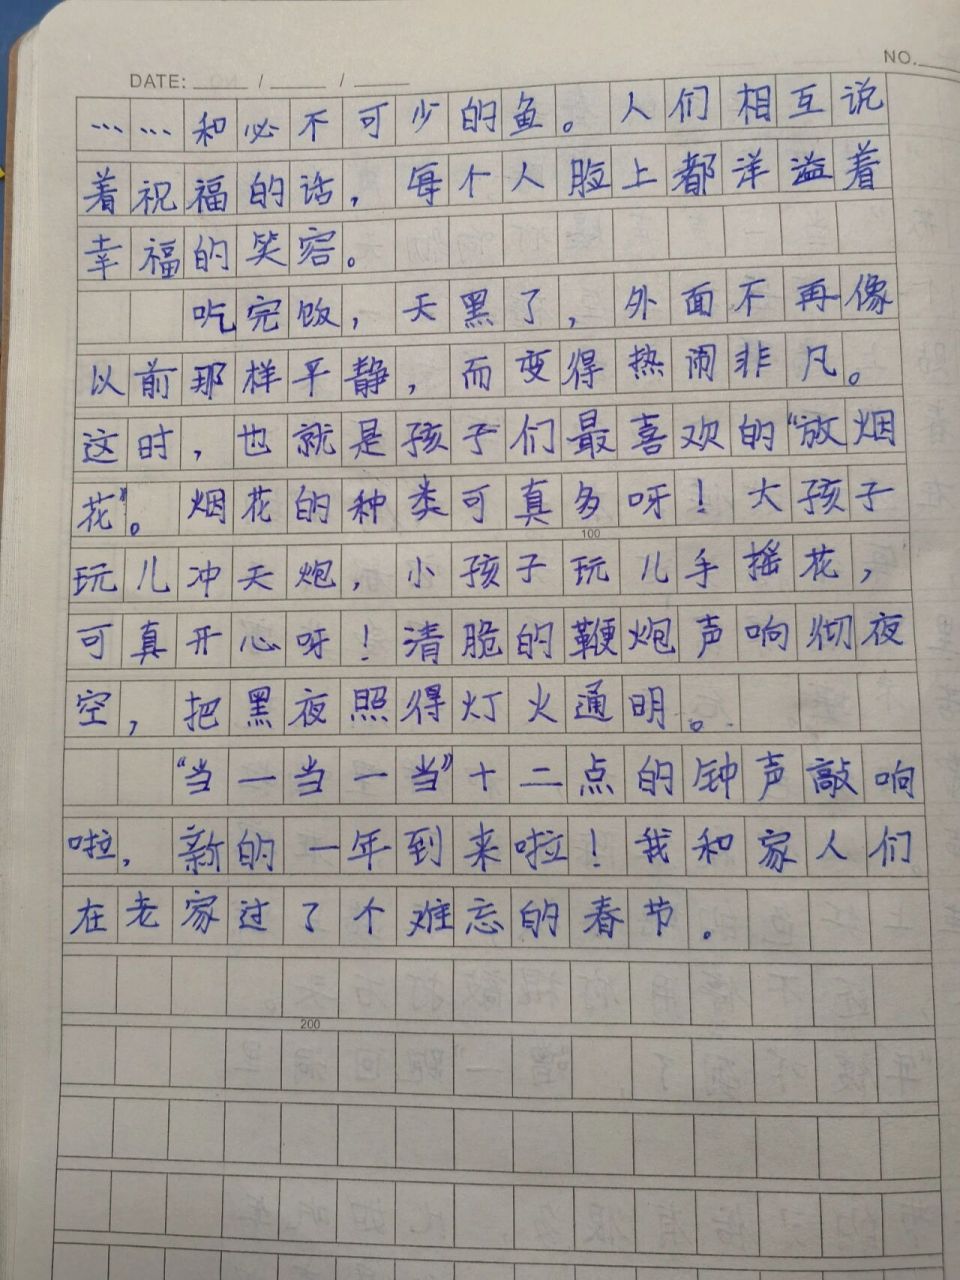 DATE: ____ / ____ / ____ NO.
……和必不可少的鱼。人们相互说
着祝福的话，每个人脸上都洋溢着
幸福的笑容。
吃完饭，天黑了，外面不再像
以前那样平静，而变得热闹非凡。
这时，也就是孩子们最喜欢的“放烟
花”。烟花的种类可真多呀！大孩子
100
玩儿冲天炮，小孩子玩儿手摇花，
可真开心呀！清脆的鞭炮声响彻夜
空，把黑夜照得灯火通明。
“当一当一当”十二点的钟声敲响
啦，新的一年到来啦！我和家人们
在老家过了个难忘的春节。
200